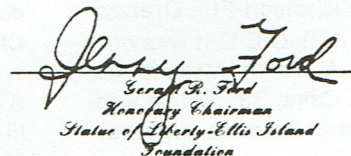 Jerry Ford
Gerald R. Ford
Honorary Chairman
Statue of Liberty-Ellis Island
Foundation